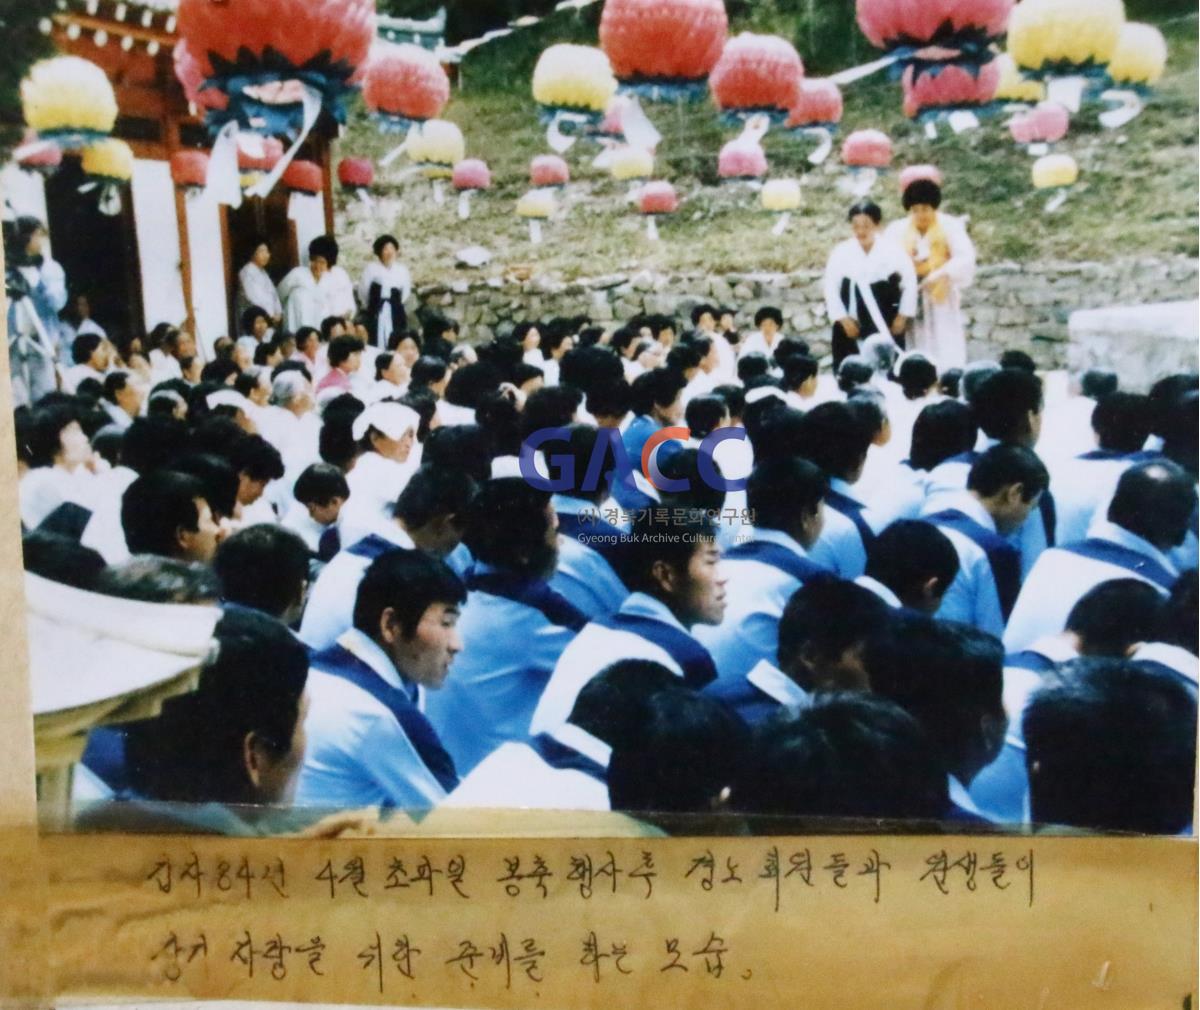 GACC
(사)경북기록문화연구원
Gyeong Buk Archive Culture Center
갑자84년 4월 초파일 봉축행사후 경노회원들과 원생들이
장기 자랑을 위한 준비를 하는 모습。